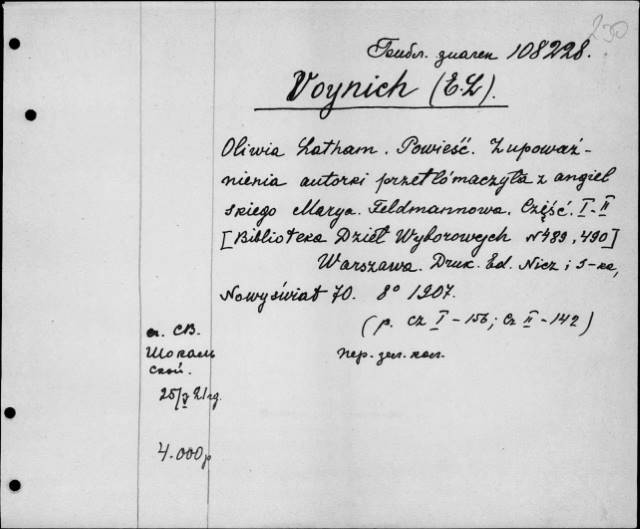 230
108228.
Voynich (E.L).
Oliwia Latham. Powieść. Z upoważ-
nienia autorki przetłómaczyła z angiel
skiego Marya. Feldmannowa. Część. I-II
[Biblioteka Dzieł Wyborowych N489, 490]
Warszawa. Druk. Ed. Nicz i S-ka,
Nowyświat 70. 8° 1907.
(p. cz I - 156; cz II - 142)
СВ.
Шокаль
ской.
пер. зел. кол.
25/V 21 г.
4.000 р